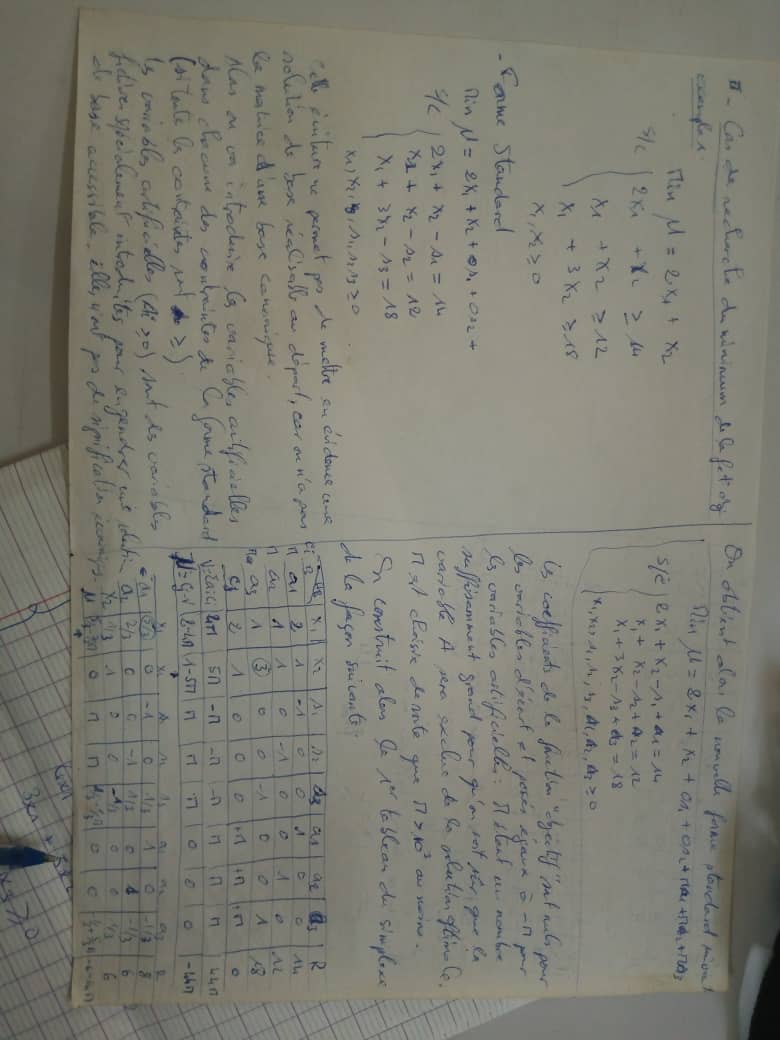 II - Cas de recherche du minimum de la fct obj
exemples.
Min M = 2x1 + x2
S/c { 2x1 + x2 ≥ 14
x1 + x2 ≥ 12
x1 + 3x2 ≥ 18
x1, x2 ≥ 0
- Forme Standard
Min M = 2x1 + x2 + 0s1 + 0s2 +
S/c { 2x1 + x2 - s1 = 14
x1 + x2 - s2 = 12
x1 + 3x2 - s3 = 18
x1, x2, s1, s2, s3 ≥ 0
Cette écriture ne permet pas de mettre en évidence une
solution de base réalisable au départ, car on n'a pas
la matrice d'une base canonique.
Alors on va introduire les variables artificielles
dans chacune des contraintes de la forme standard
(si toute les contraintes sont ≥).
les variables artificielles (Ai ≥ 0) sont des variables
fictives spécialement introduites pour engendrer une
de base accessible, elles n'ont pas de signification
On obtient alors la nouvelle forme standard
Min M = 2x1 + x2 + 0s1 + 0s2 + Ma1 + Ma2 + Ma3
S/c { 2x1 + x2 - s1 + a1 = 14
x1 + x2 - s2 + a2 = 12
x1 + 3x2 - s3 + a3 = 18
x1, x2, s1, s2, s3, a1, a2, a3 ≥ 0
les coefficients de la fonction "objectif" sont nuls pour
les variables d'écart et posés égaux à -M pour
les variables artificielles : M étant un nombre
suffisamment grand pour qu'on soit sûr que la
variable A sera exclue de la solution optimale.
M est choisie de sorte que M > 10³ au moins.
On construit alors le 1er tableau du simplexe
de la façon suivante :
x1 x2 s1 s2 s3 a1 a2 a3 R
M a1 2 1 -1 0 0 1 0 0 14
M a2 1 1 0 -1 0 0 1 0 12
M a3 1 3 0 0 -1 0 0 1 18
cj 2 1 0 0 0 +M +M +M 0
4M 5M -M -M -M M M M 44M
2-4M 1-5M M M M 0 0 0 -44M
x1 x2 s1 s2 s3 a1 a2 a3 R
a1 5/3 0 -1 0 1/3 1 0 -1/3 8
a2 2/3 0 0 -1 1/3 0 1 -1/3 6
x2 1/3 1 0 0 -1/3 0 0 1/3 6